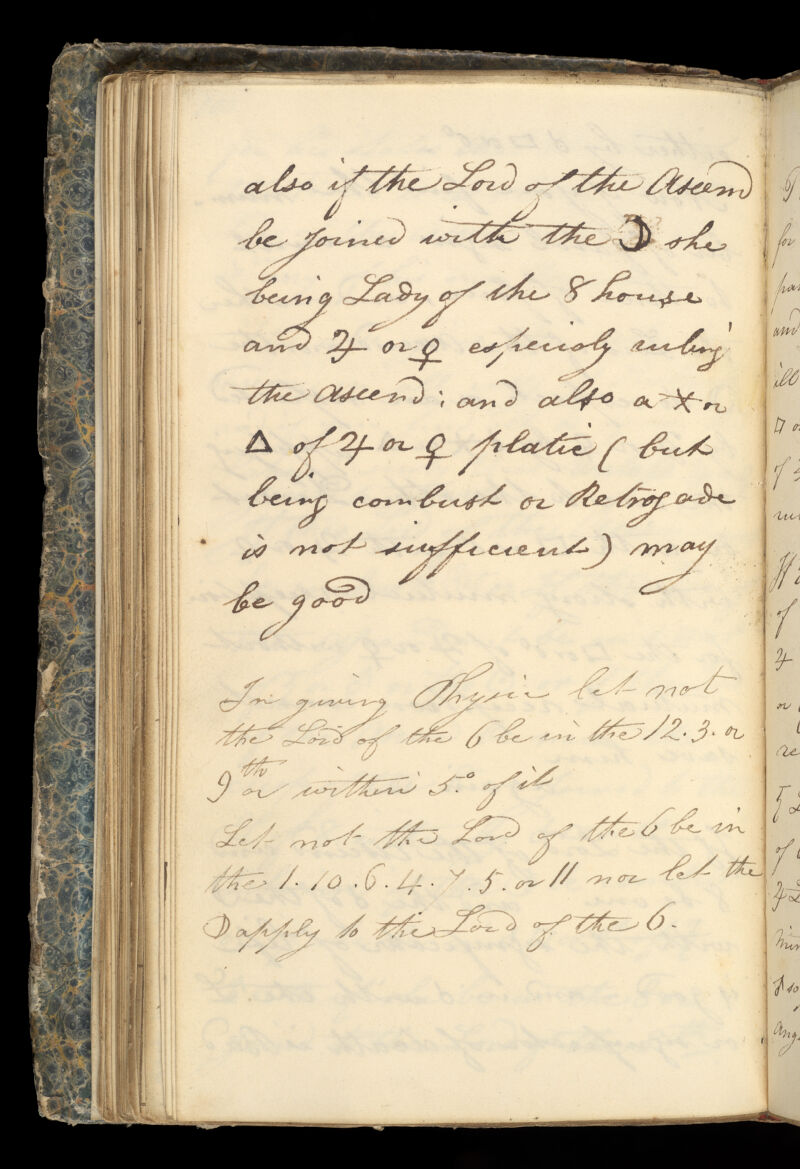 also if the Lord of the Ascend
be joined with the ☽ she
being Lady of the 8 house
and ♃ or ♀ especioly ruling
the ascend: and also a ⚹ or
△ of ♃ or ♀ platic (but
being combust or Retrogade
is not sufficient) may
be good
In giving Physic let not
the Lord of the 6 be in the 12. 3. or
9th or within 5.° of it
Let not the Lord of the 6 be in
the 1. 10. 6. 4. 7. 5. or 11 nor let the
☽ apply to the Lord of the 6.
for
and
ill
□
of
of
♃
or
re
of